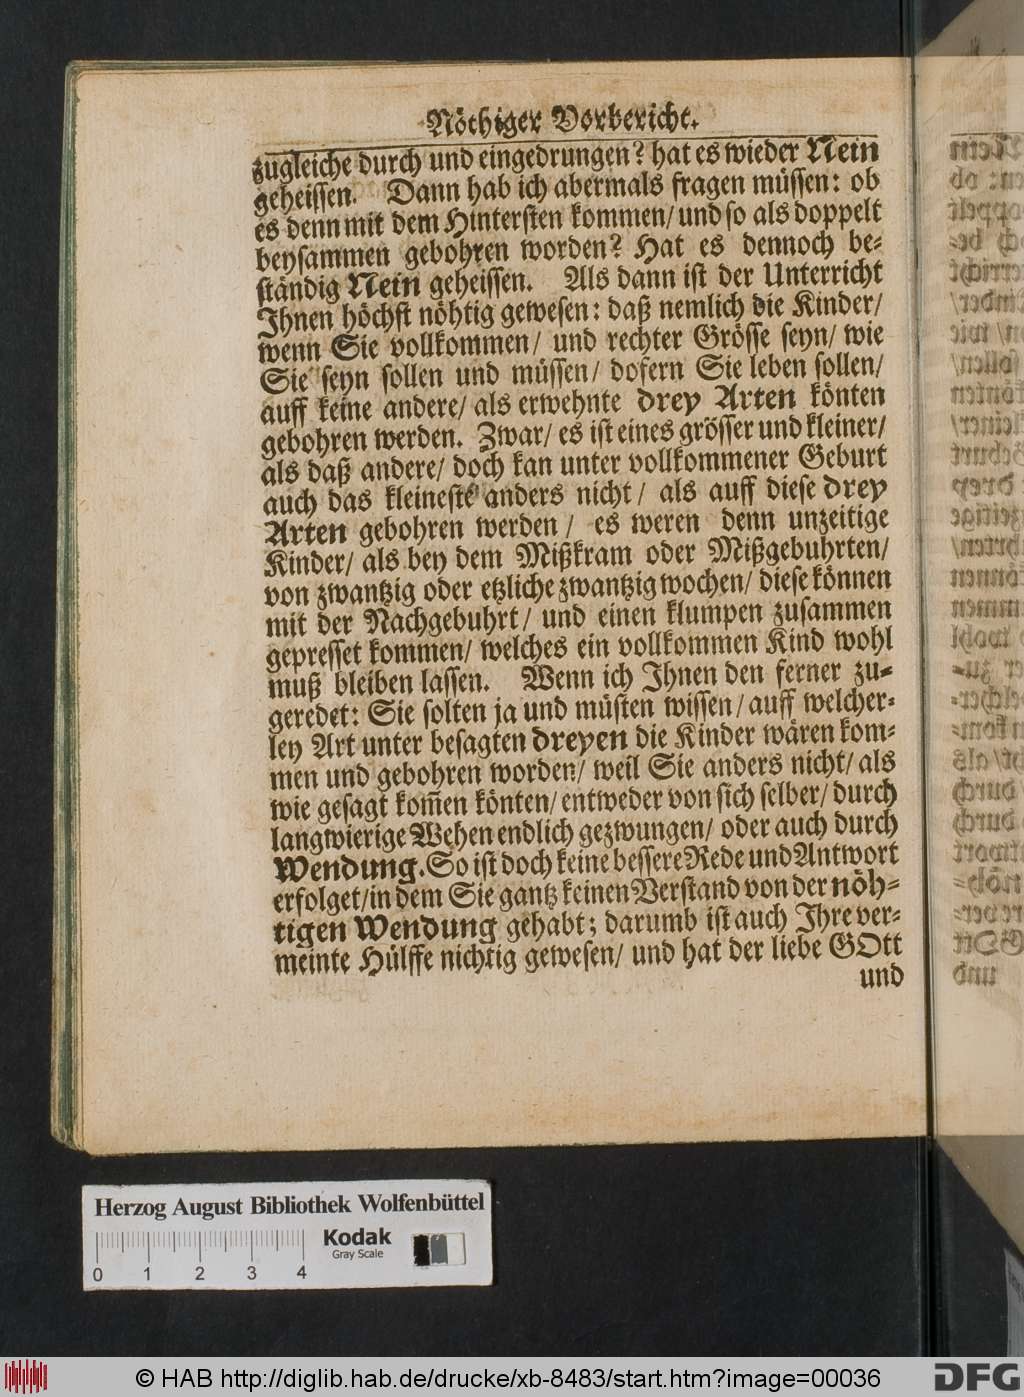 Nöthiger Vorbericht.
zugleiche durch und eingedrungen? hat es wieder Nein
geheissen. Dann hab ich abermals fragen müssen: ob
es denn mit dem Hintersten kommen/ und so als doppelt
beysammen gebohren worden? Hat es dennoch be-
ständig Nein geheissen. Als dann ist der Unterricht
Ihnen höchst nöhtig gewesen: daß nemlich die Kinder/
wenn Sie vollkommen/ und rechter Grösse seyn/ wie
Sie seyn sollen und müssen/ dofern Sie leben sollen/
auff keine andere/ als erwehnte drey Arten könten
gebohren werden. Zwar/ es ist eines grösser und kleiner/
als daß andere/ doch kan unter vollkommener Geburt
auch das kleineste anders nicht/ als auff diese drey
Arten gebohren werden/ es weren denn unzeitige
Kinder/ als bey dem Mißkram oder Mißgebuhrten/
von zwantzig oder etzliche zwantzig wochen/ diese können
mit der Nachgebuhrt/ und einen klumpen zusammen
gepresset kommen/ welches ein vollkommen Kind wohl
muß bleiben lassen. Wenn ich Ihnen den ferner zu-
geredet: Sie solten ja und müsten wissen/ auff welcher-
ley Art unter besagten dreyen die Kinder wären kom-
men und gebohren worden/ weil Sie anders nicht/ als
wie gesagt kom̃en könten/ entweder von sich selber/ durch
langwierige Wehen endlich gezwungen/ oder auch durch
Wendung. So ist doch keine bessere Rede und Antwort
erfolget/ in dem Sie gantz keinen Verstand von der nöh-
tigen Wendung gehabt; darumb ist auch Ihre ver-
meinte Hülffe nichtig gewesen/ und hat der liebe GOtt
und
Herzog August Bibliothek Wolfenbüttel
Kodak
Gray Scale
0 1 2 3 4
© HAB http://diglib.hab.de/drucke/xb-8483/start.htm?image=00036
DFG